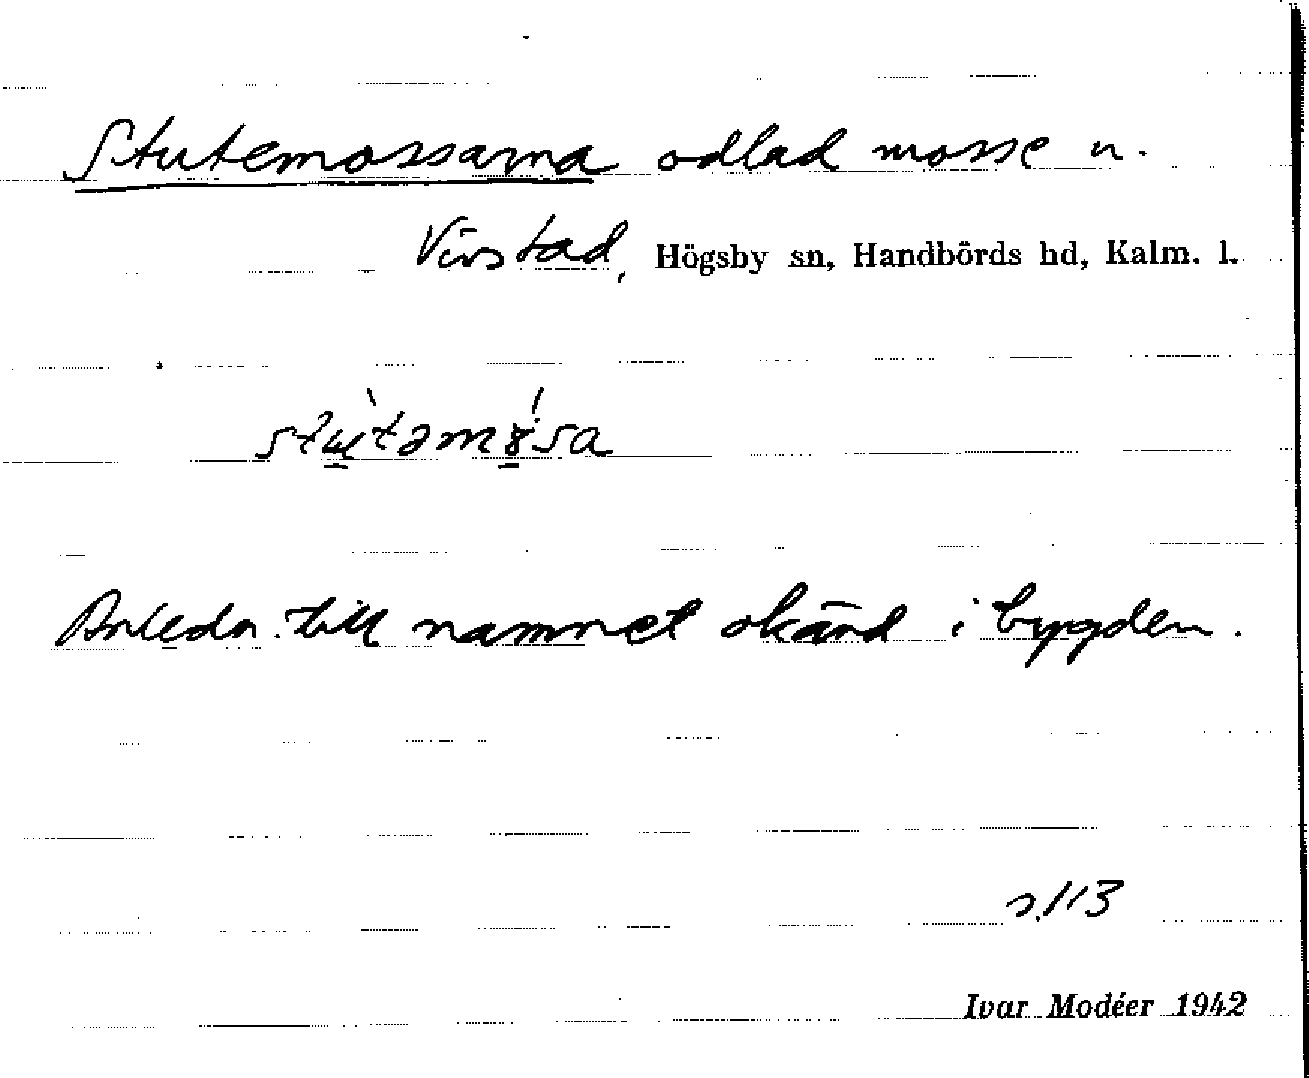 Stutemossarna odlad mosse u.
Virstad, Högsby sn, Handbörds hd, Kalm. l.
Anledn. till namnet okänd i bygden.
s. 113
Ivar Modéer 1942